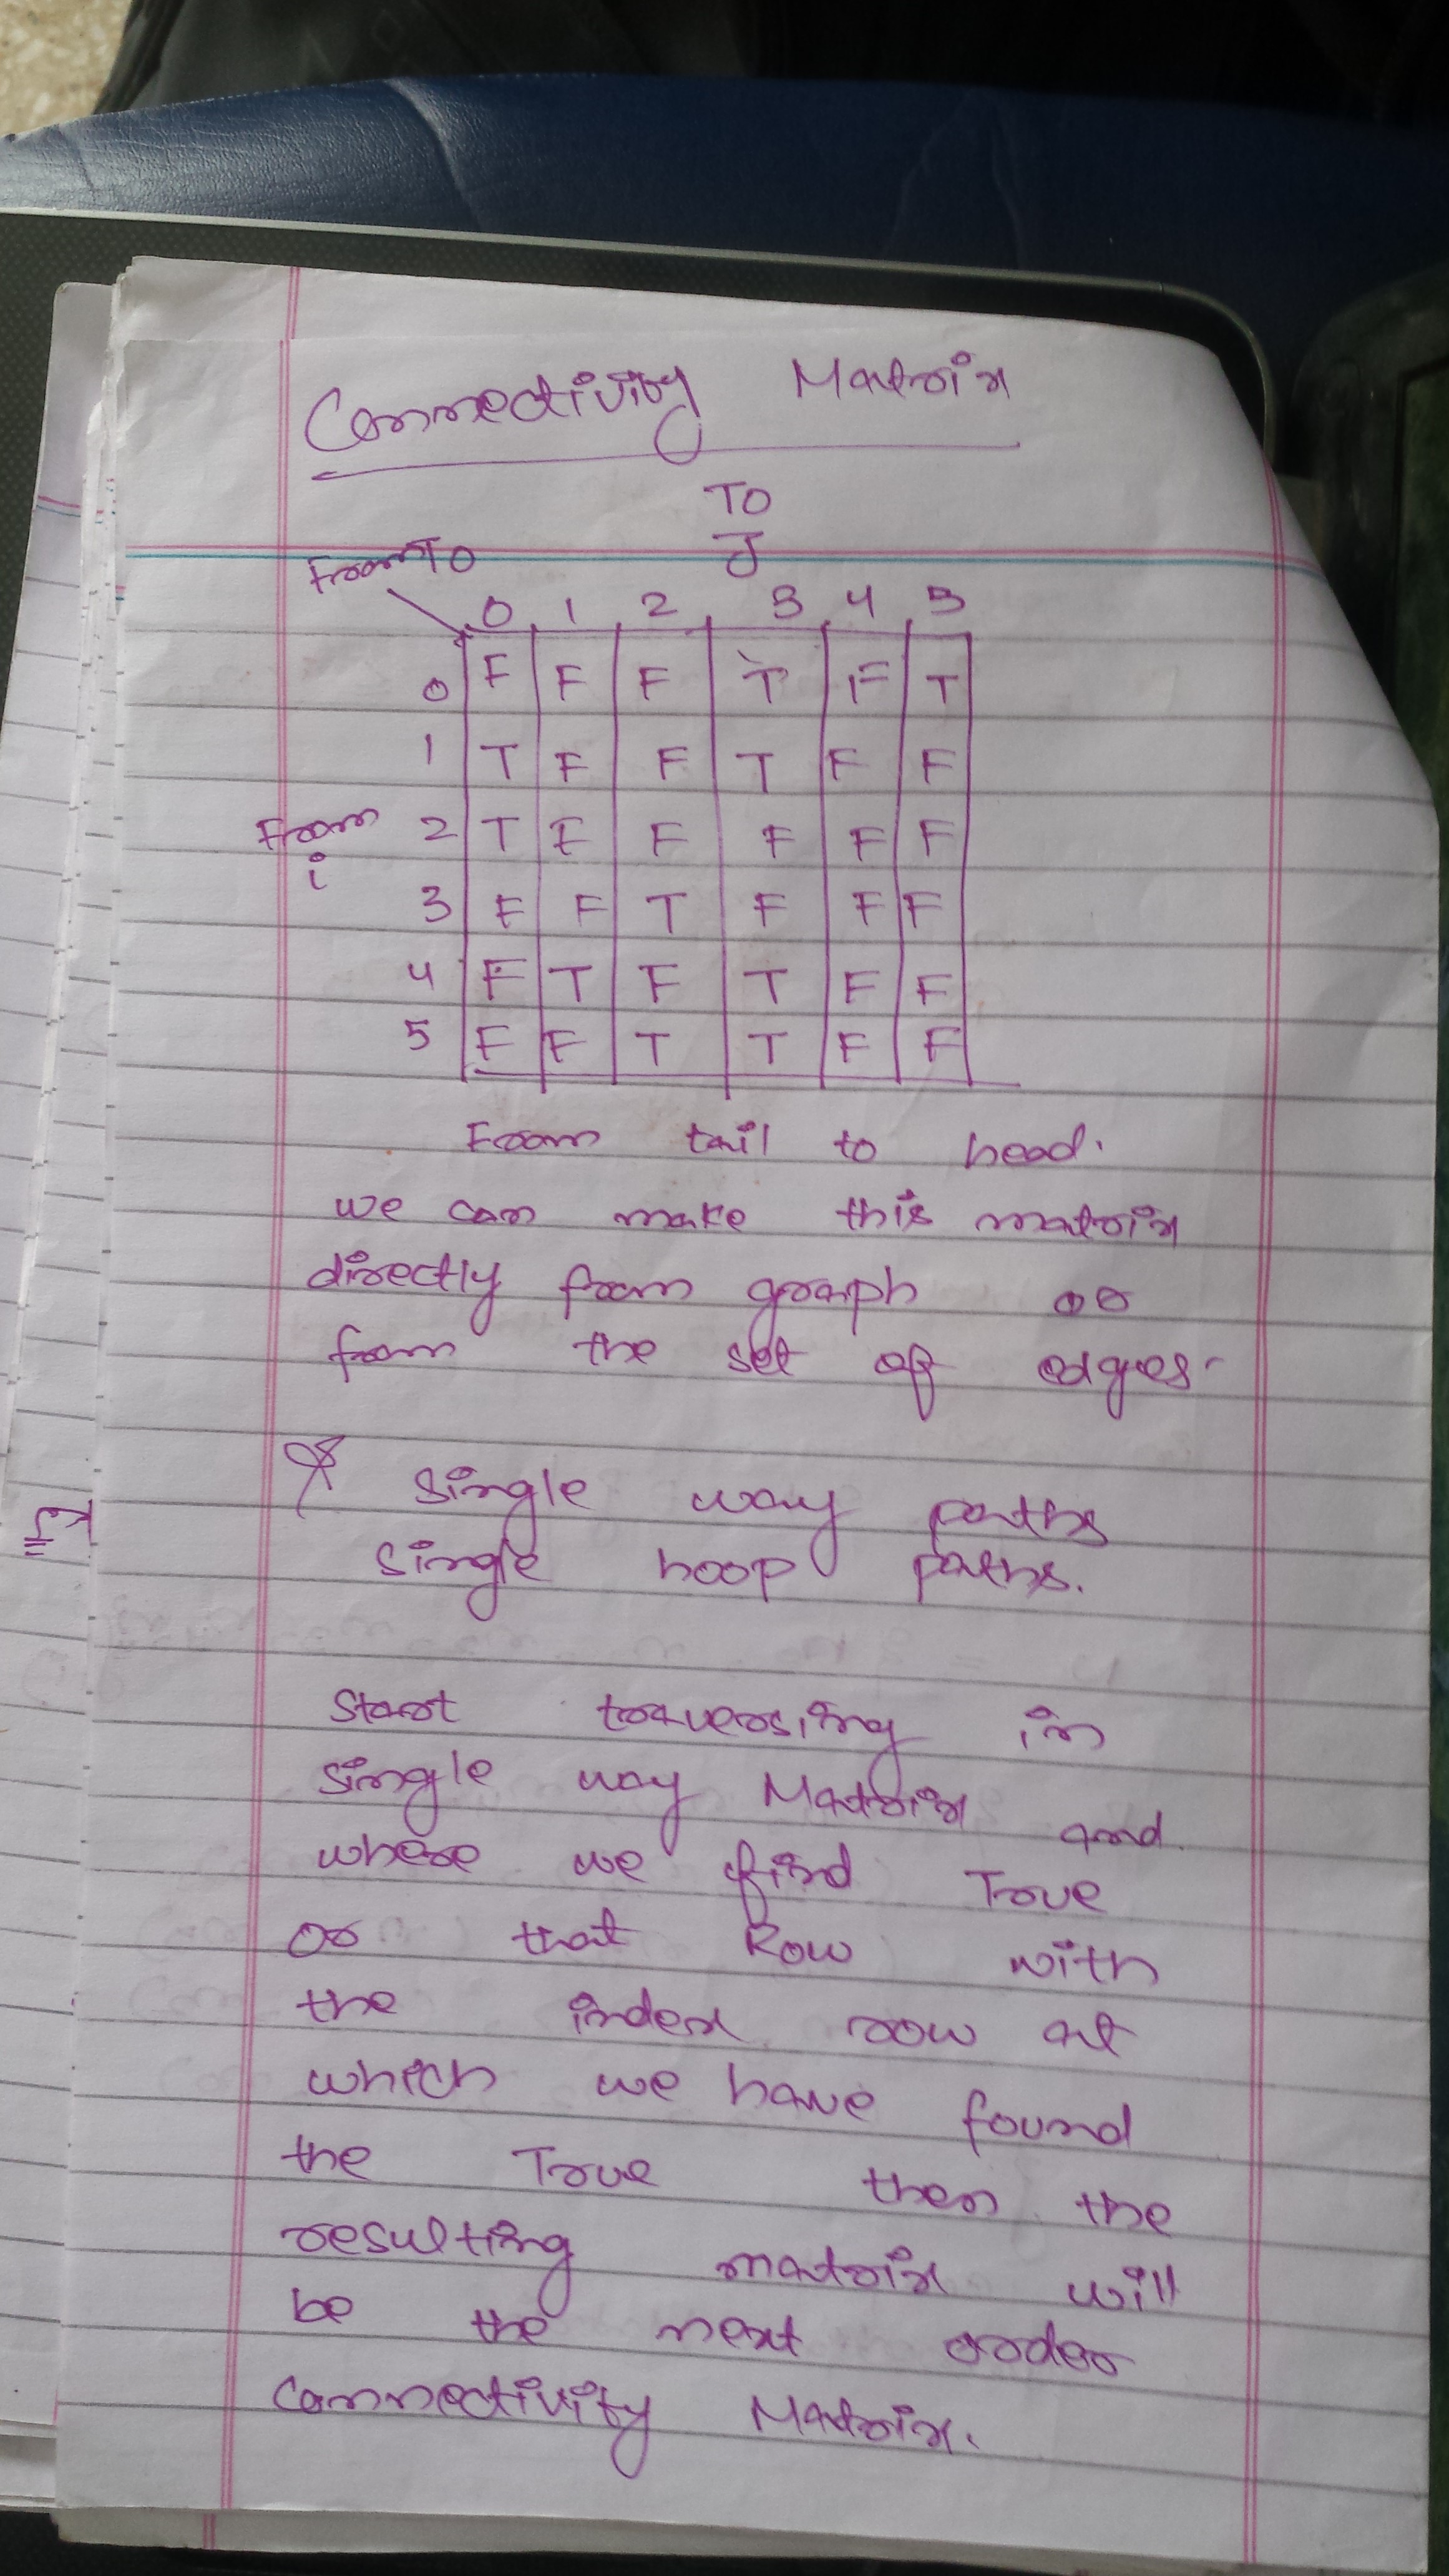 Connectivity Matrix
TO
J
From TO
0 1 2 3 4 5
0 F F F T F T
1 T F F T F F
From 2 T F F F F F
i
3 F F T F F F
4 F T F T F F
5 F F T T F F
From tail to head.
we can make this matrix
directly from graph or
from the set of edges.
Single way paths
single hoop paths.
Start traversing in
single way Matrix and
where we find True
or that Row with
the index row at
which we have found
the True then the
resulting matrix will
be the next order
connectivity Matrix.